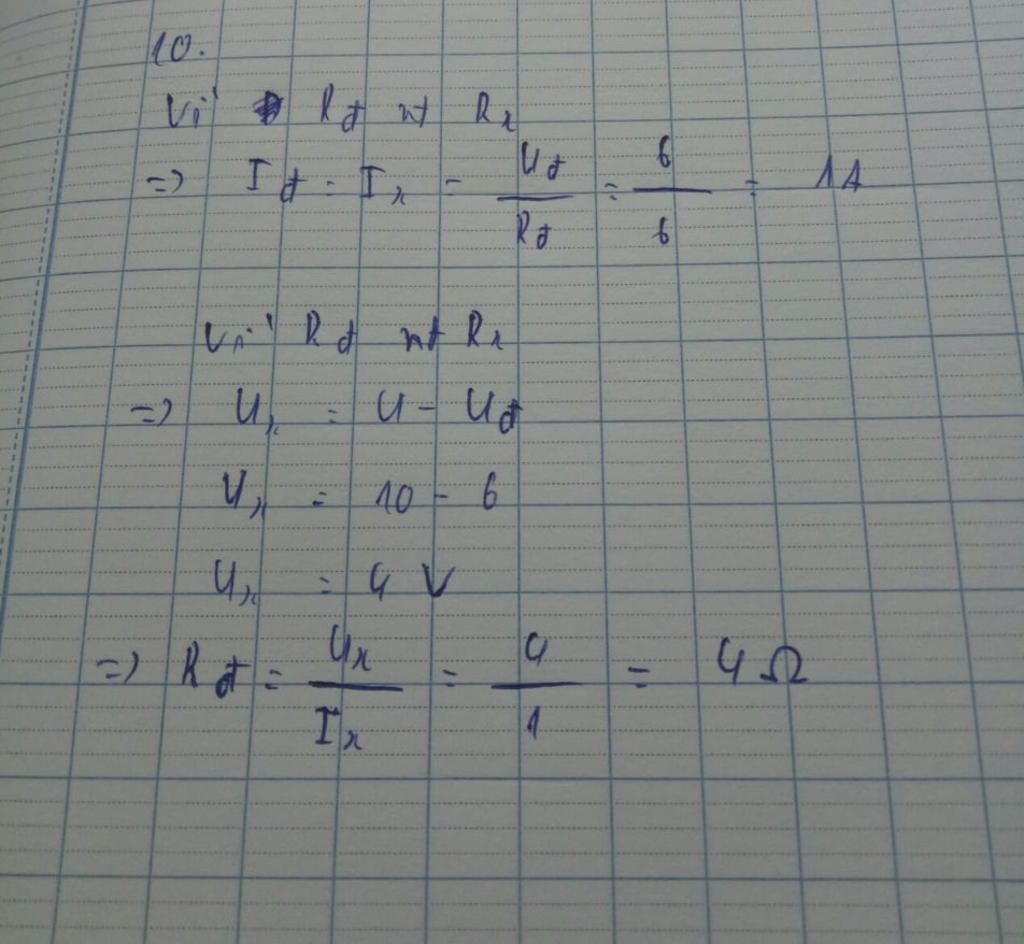 10.
Vì Rđ nt Rx
=> Iđ = Ix = Uđ / Rđ = 6 / 6 = 1A
Vì Rđ nt Rx
=> Ux = U - Uđ
Ux = 10 - 6
Ux = 4 V
=> Rđ = Ux / Ix = 4 / 1 = 4 Ω